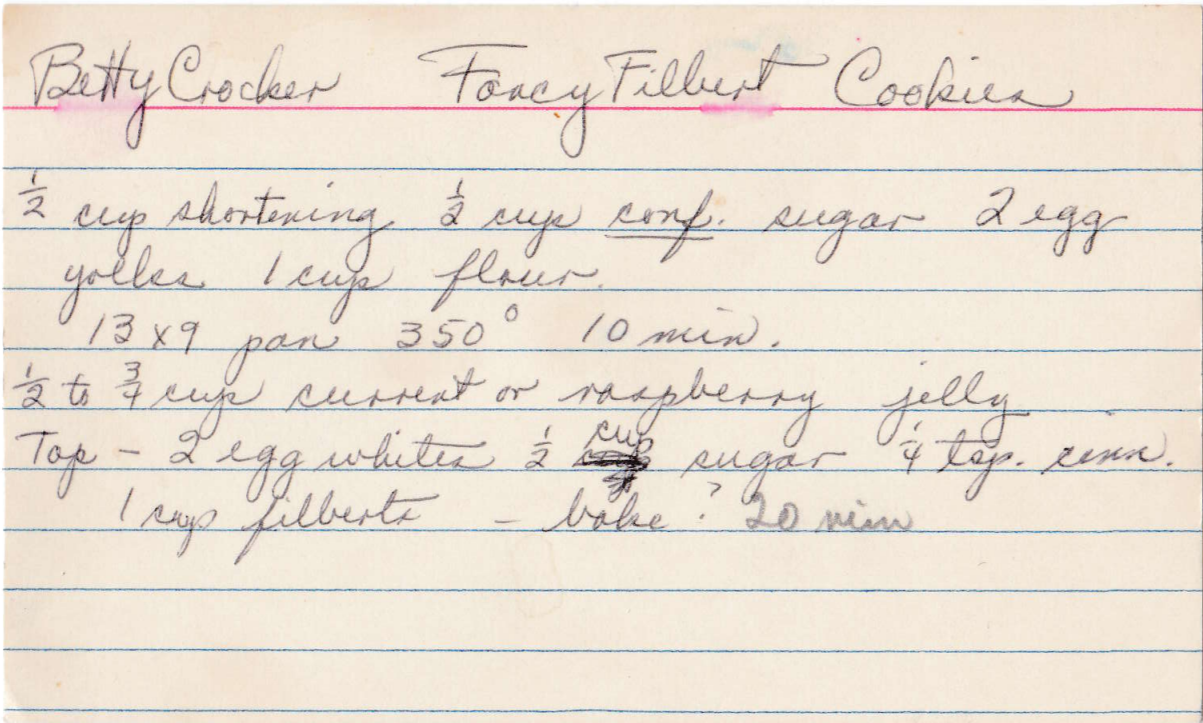 Betty Crocker Fancy Filbert Cookies
½ cup shortening ½ cup conf. sugar 2 egg
yolks 1 cup flour.
13 x 9 pan 350° 10 min.
½ to ¾ cup current or raspberry jelly
Top – 2 egg whites ½ cup sugar ¼ tsp. cinn.
1 cup filberts – bake ? 20 min